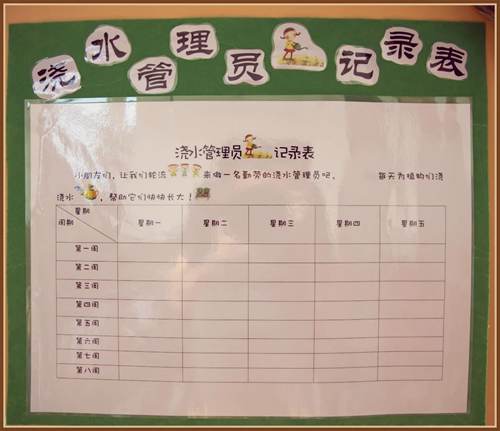 浇水管理员记录表
浇水管理员记录表
小朋友们，让我们轮流来做一名勤劳的浇水管理员吧， 每天为植物们浇
浇水，帮助它们快快长大！
星期
周期
星期一 星期二 星期三 星期四 星期五
第一周
第二周
第三周
第四周
第五周
第六周
第七周
第八周